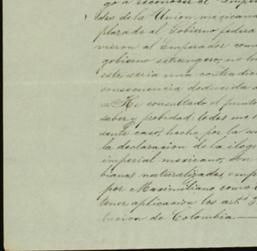 go á reconocer el Impe
des de la Union mexicana
plazado al Gobierno federa
vieron al Emperador como
gobierno estrangero, no ha
este, seria una contradic
consecuencia deducida d
He consultado el punto
saber y probidad: todas me h
sente caso, hecha por la
la declaracion de la ileg
imperial mexicano, son
banas naturalizadas
por Maximiliano como
tener aplicacion los artos. 2
lucion de Colombia